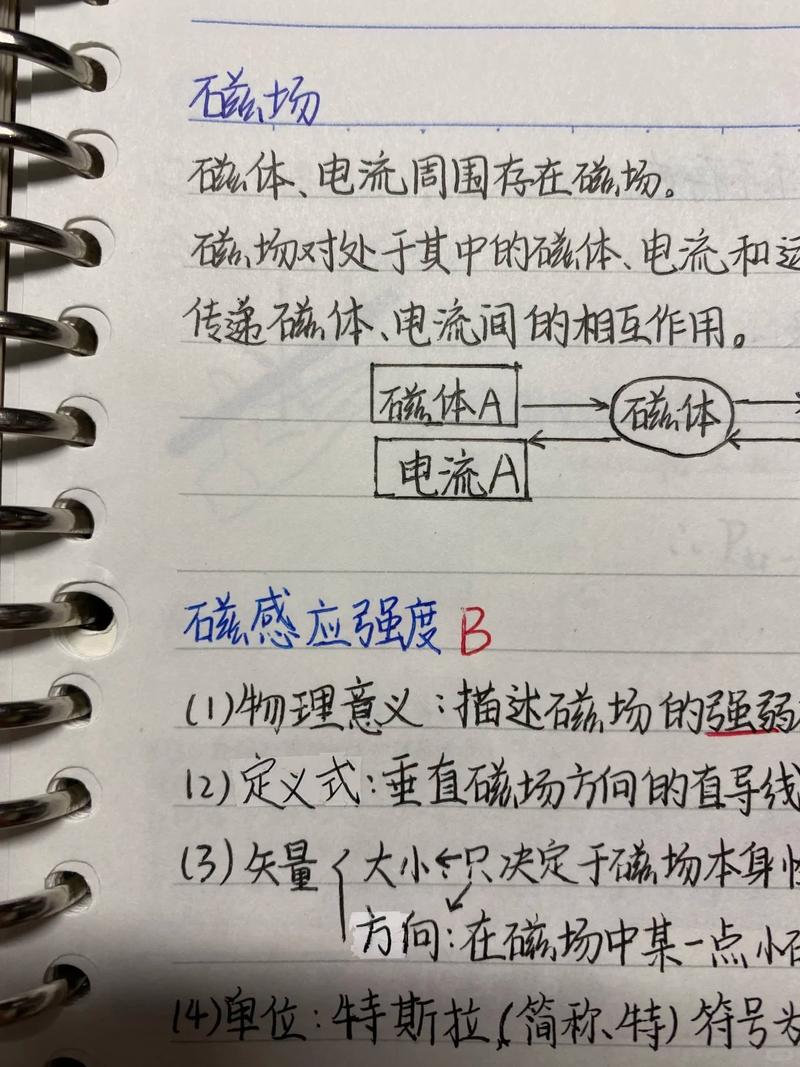 磁场
磁体、电流周围存在磁场。
磁场对处于其中的磁体、电流和运
传递磁体、电流间的相互作用。
磁体A
磁体
电流A
磁感应强度 B
(1)物理意义:描述磁场的强弱
(2)定义式:垂直磁场方向的直导线
(3)矢量 大小:只决定于磁场本身性
方向:在磁场中某一点小
(4)单位:特斯拉,(简称、特)符号为